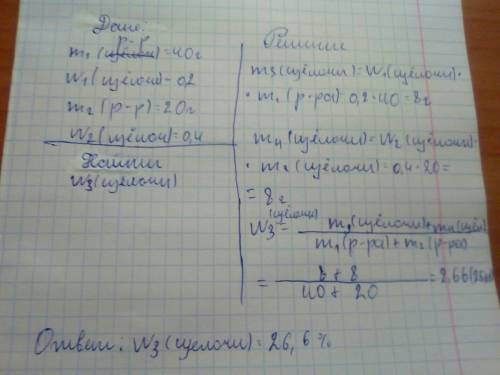 Дано:
р-р
m₁ (щёлочи) = 40 г
w₁ (щёлочи) = 0,2
m₂ (р-р) = 20 г
w₂ (щёлочи) = 0,4
Найти
w₃ (щёлочи)
Решение
m₃ (щёлочи) = w₁ (щёлочи) ·
· m₁ (р-ра) 0,2 · 40 = 8 г
m₄ (щёлочи) = w₂ (щёлочи) ·
· m₂ (щёлочи) = 0,4 · 20 =
= 8 г
w₃ (щёлочи) = m₃ (щёлочи) + m₄ (щёл)
m₁ (р-ра) + m₂ (р-ра)
= 8 + 8
40 + 20
Ответ: w₃ (щелочи) = 26,6 %